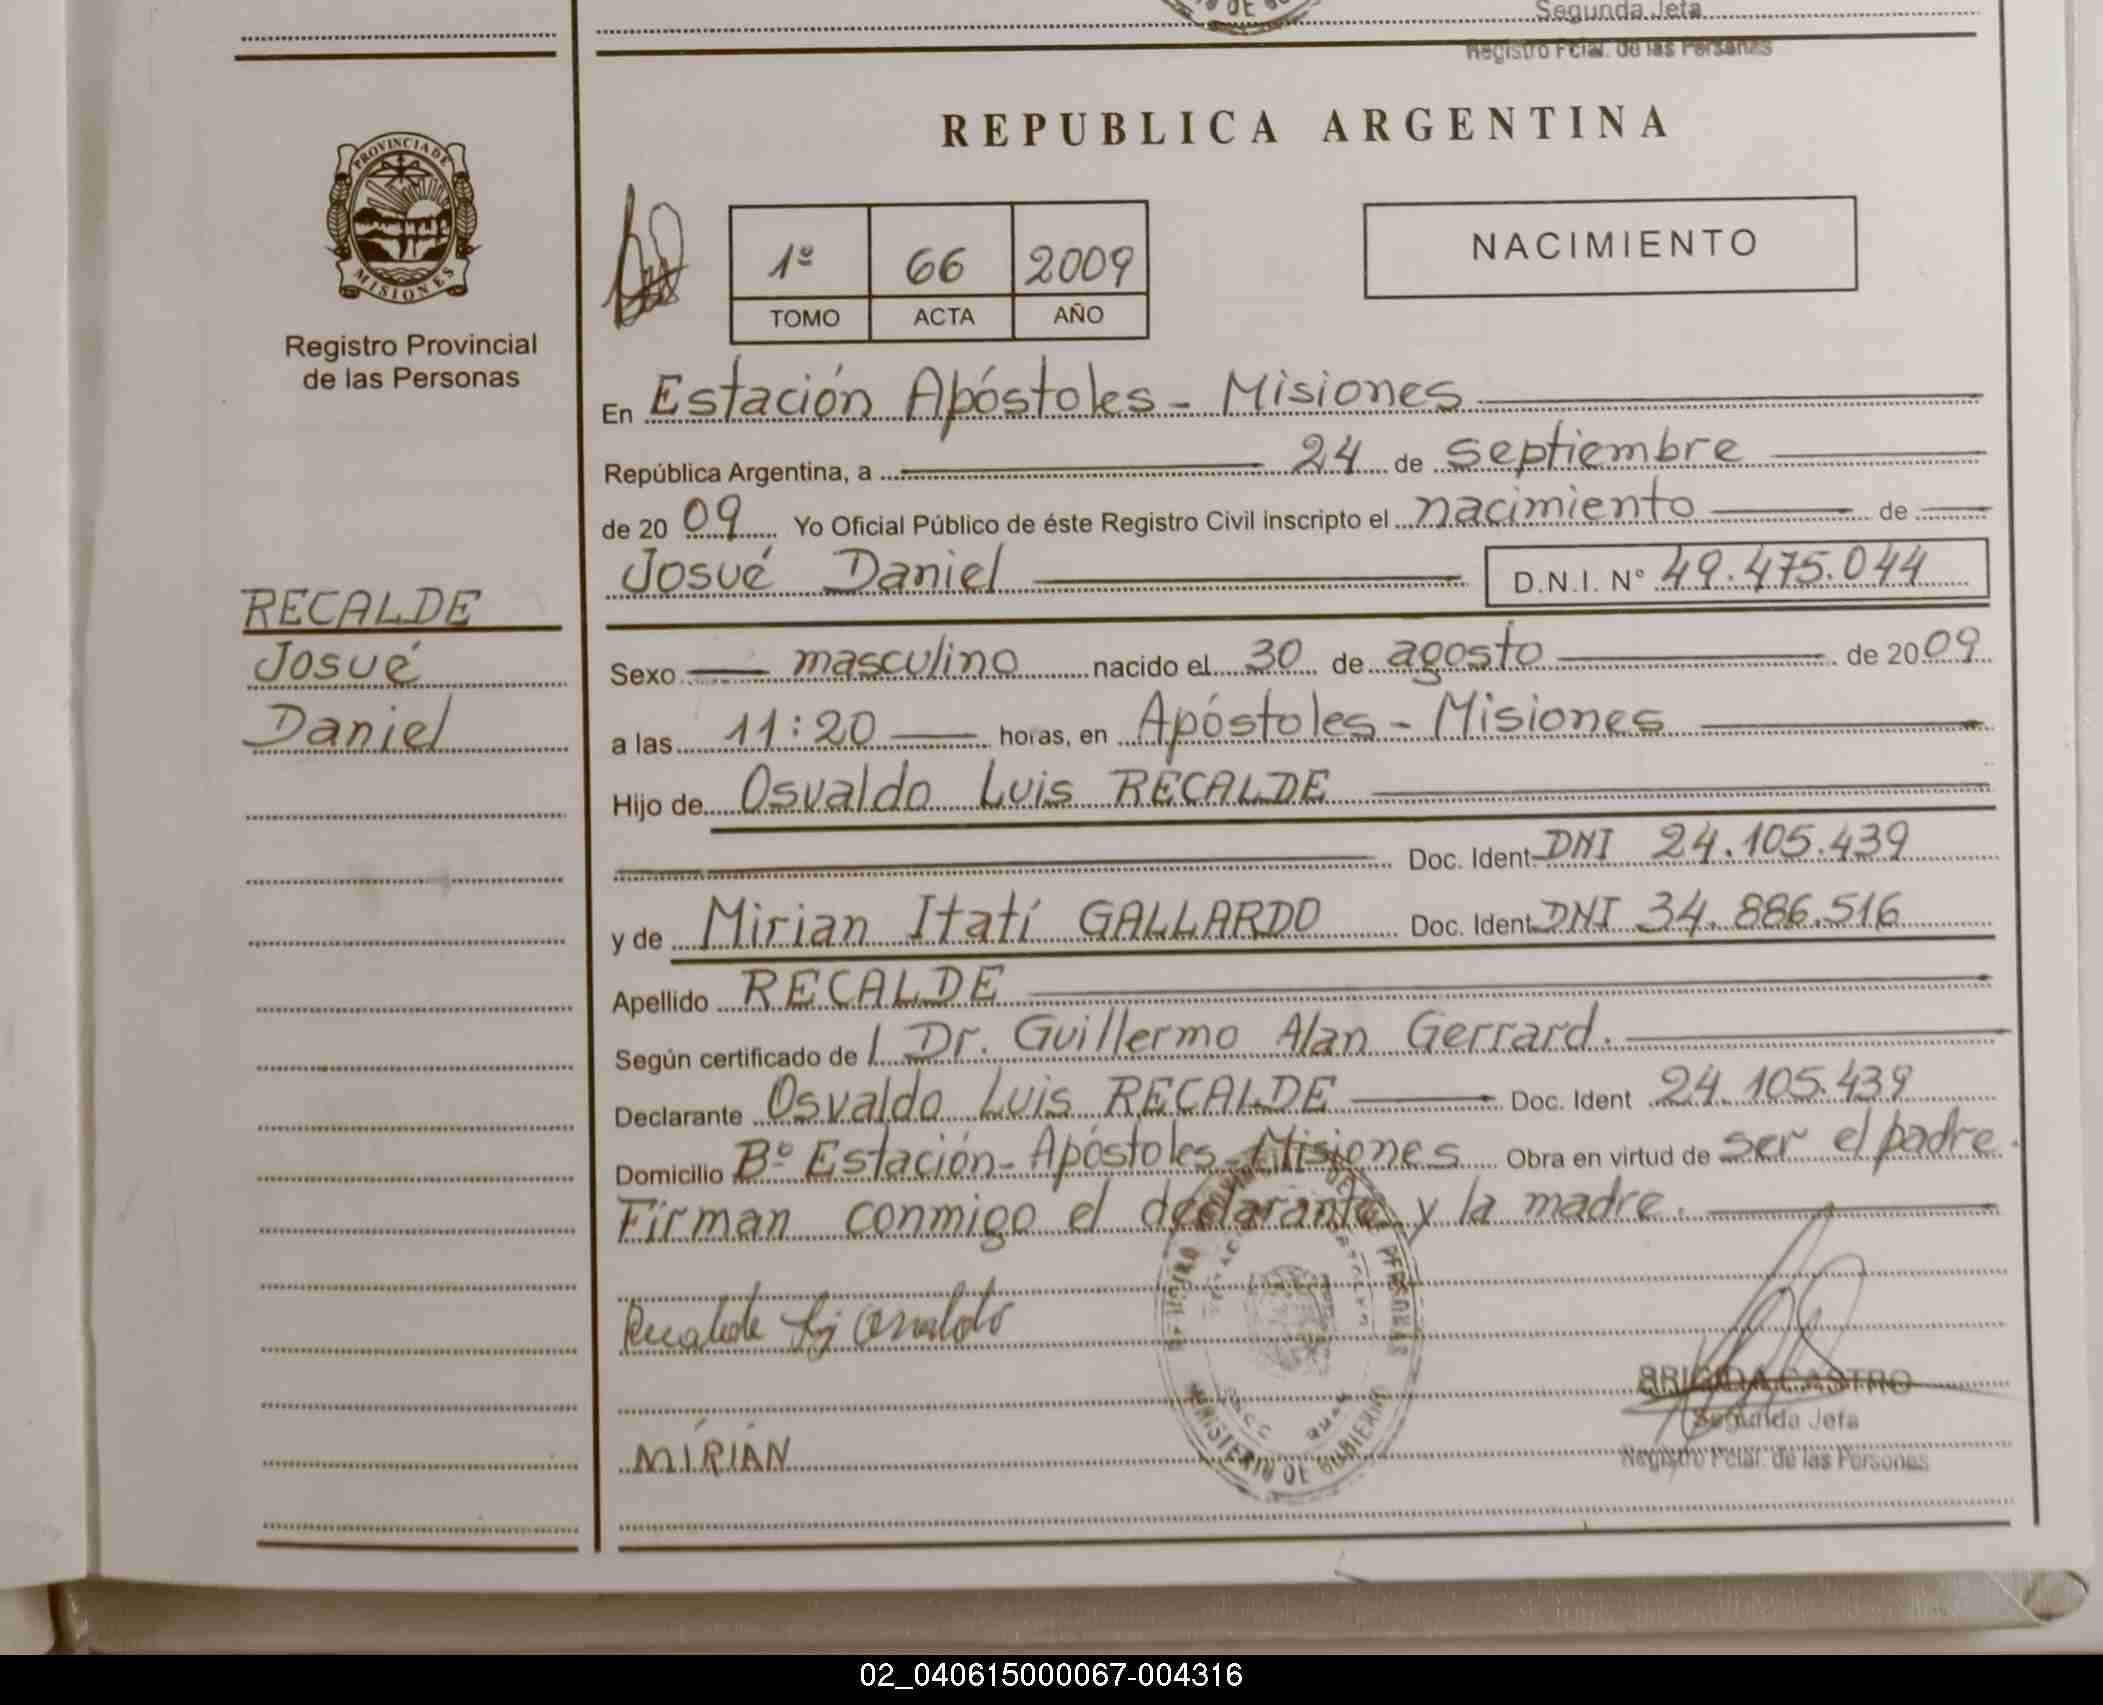 Segunda Jefa
Registro Pcial. de las Personas
REPUBLICA ARGENTINA
PROVINCIA DE
MISIONES
Registro Provincial
de las Personas
1º 66 2009
TOMO ACTA AÑO
NACIMIENTO
En Estación Apóstoles - Misiones
República Argentina, a 24 de septiembre
de 2009 Yo Oficial Público de éste Registro Civil inscripto el nacimiento de
Josué Daniel D.N.I. N° 49.475.044
RECALDE
Josué
Daniel
Sexo masculino nacido el 30 de agosto de 2009
a las 11:20 horas, en Apóstoles - Misiones
Hijo de Osvaldo Luis RECALDE
Doc. Ident DNI 24.105.439
y de Mirian Itatí GALLARDO Doc. Ident DNI 34.886.516
Apellido RECALDE
Según certificado de l Dr. Guillermo Alan Gerrard.
Declarante Osvaldo Luis RECALDE Doc. Ident 24.105.439
Domicilio Bº Estación - Apóstoles - Misiones Obra en virtud de ser el padre.
Firman conmigo el declarante y la madre.
Recalde Osvaldo
MIRIAN
DE PERSONAS
MINISTERIO DE GOBIERNO
BRIGIDA CASTRO
Segunda Jefa
Registro Pcial. de las Personas
02_040615000067-004316